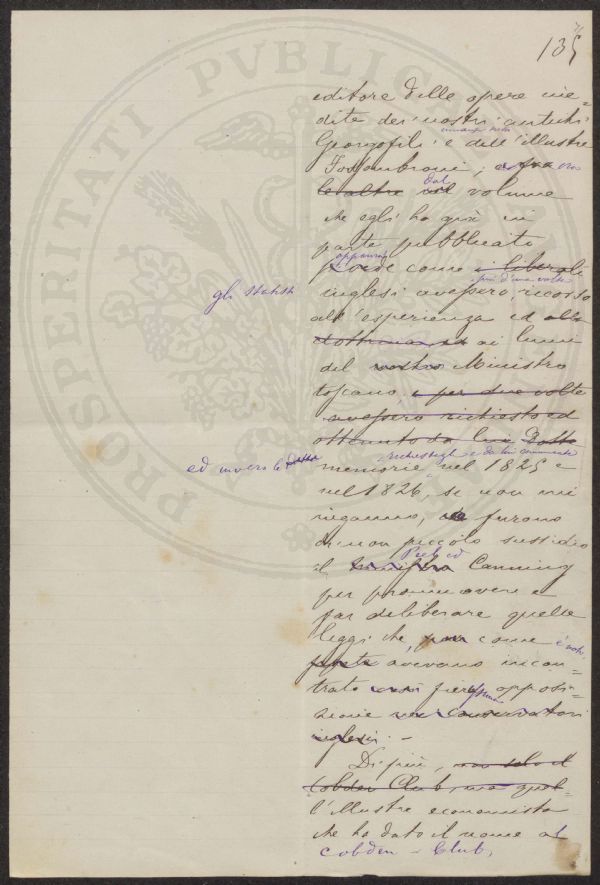 135
editore delle opere ine=
dite dei nostri antichi
Georgofili e dell'illustre
Fossombroni; e fra
le altre nel dal volume
che egli ha già in
parte pubblicato
apparisce come i liberali
gli statisti
inglesi avessero più d'una volta ricorso
all'esperienza ed alla
dottrina ed ai lumi
del nostro Ministro
toscano, e per due volte
avessero richiesto ed
ottenuto da lui Dotte
ed invero le dotte
richiestegli e da lui
memorie nel 1825 e
nel 1826, se non mi
inganno, furono
di non piccolo sussidio
il Peel ed Canning
per promuovere e
far deliberare quelle
leggi che, pure come è noto
avevano incon=
trato fiera opposi=
zione nei conservatori
inglesi. -
Di più, non solo il
Cobden Club, ma quel=
l'illustre economista
che ha dato il nome al
Cobden - Club,
PROSPERITATI PVBLICAE